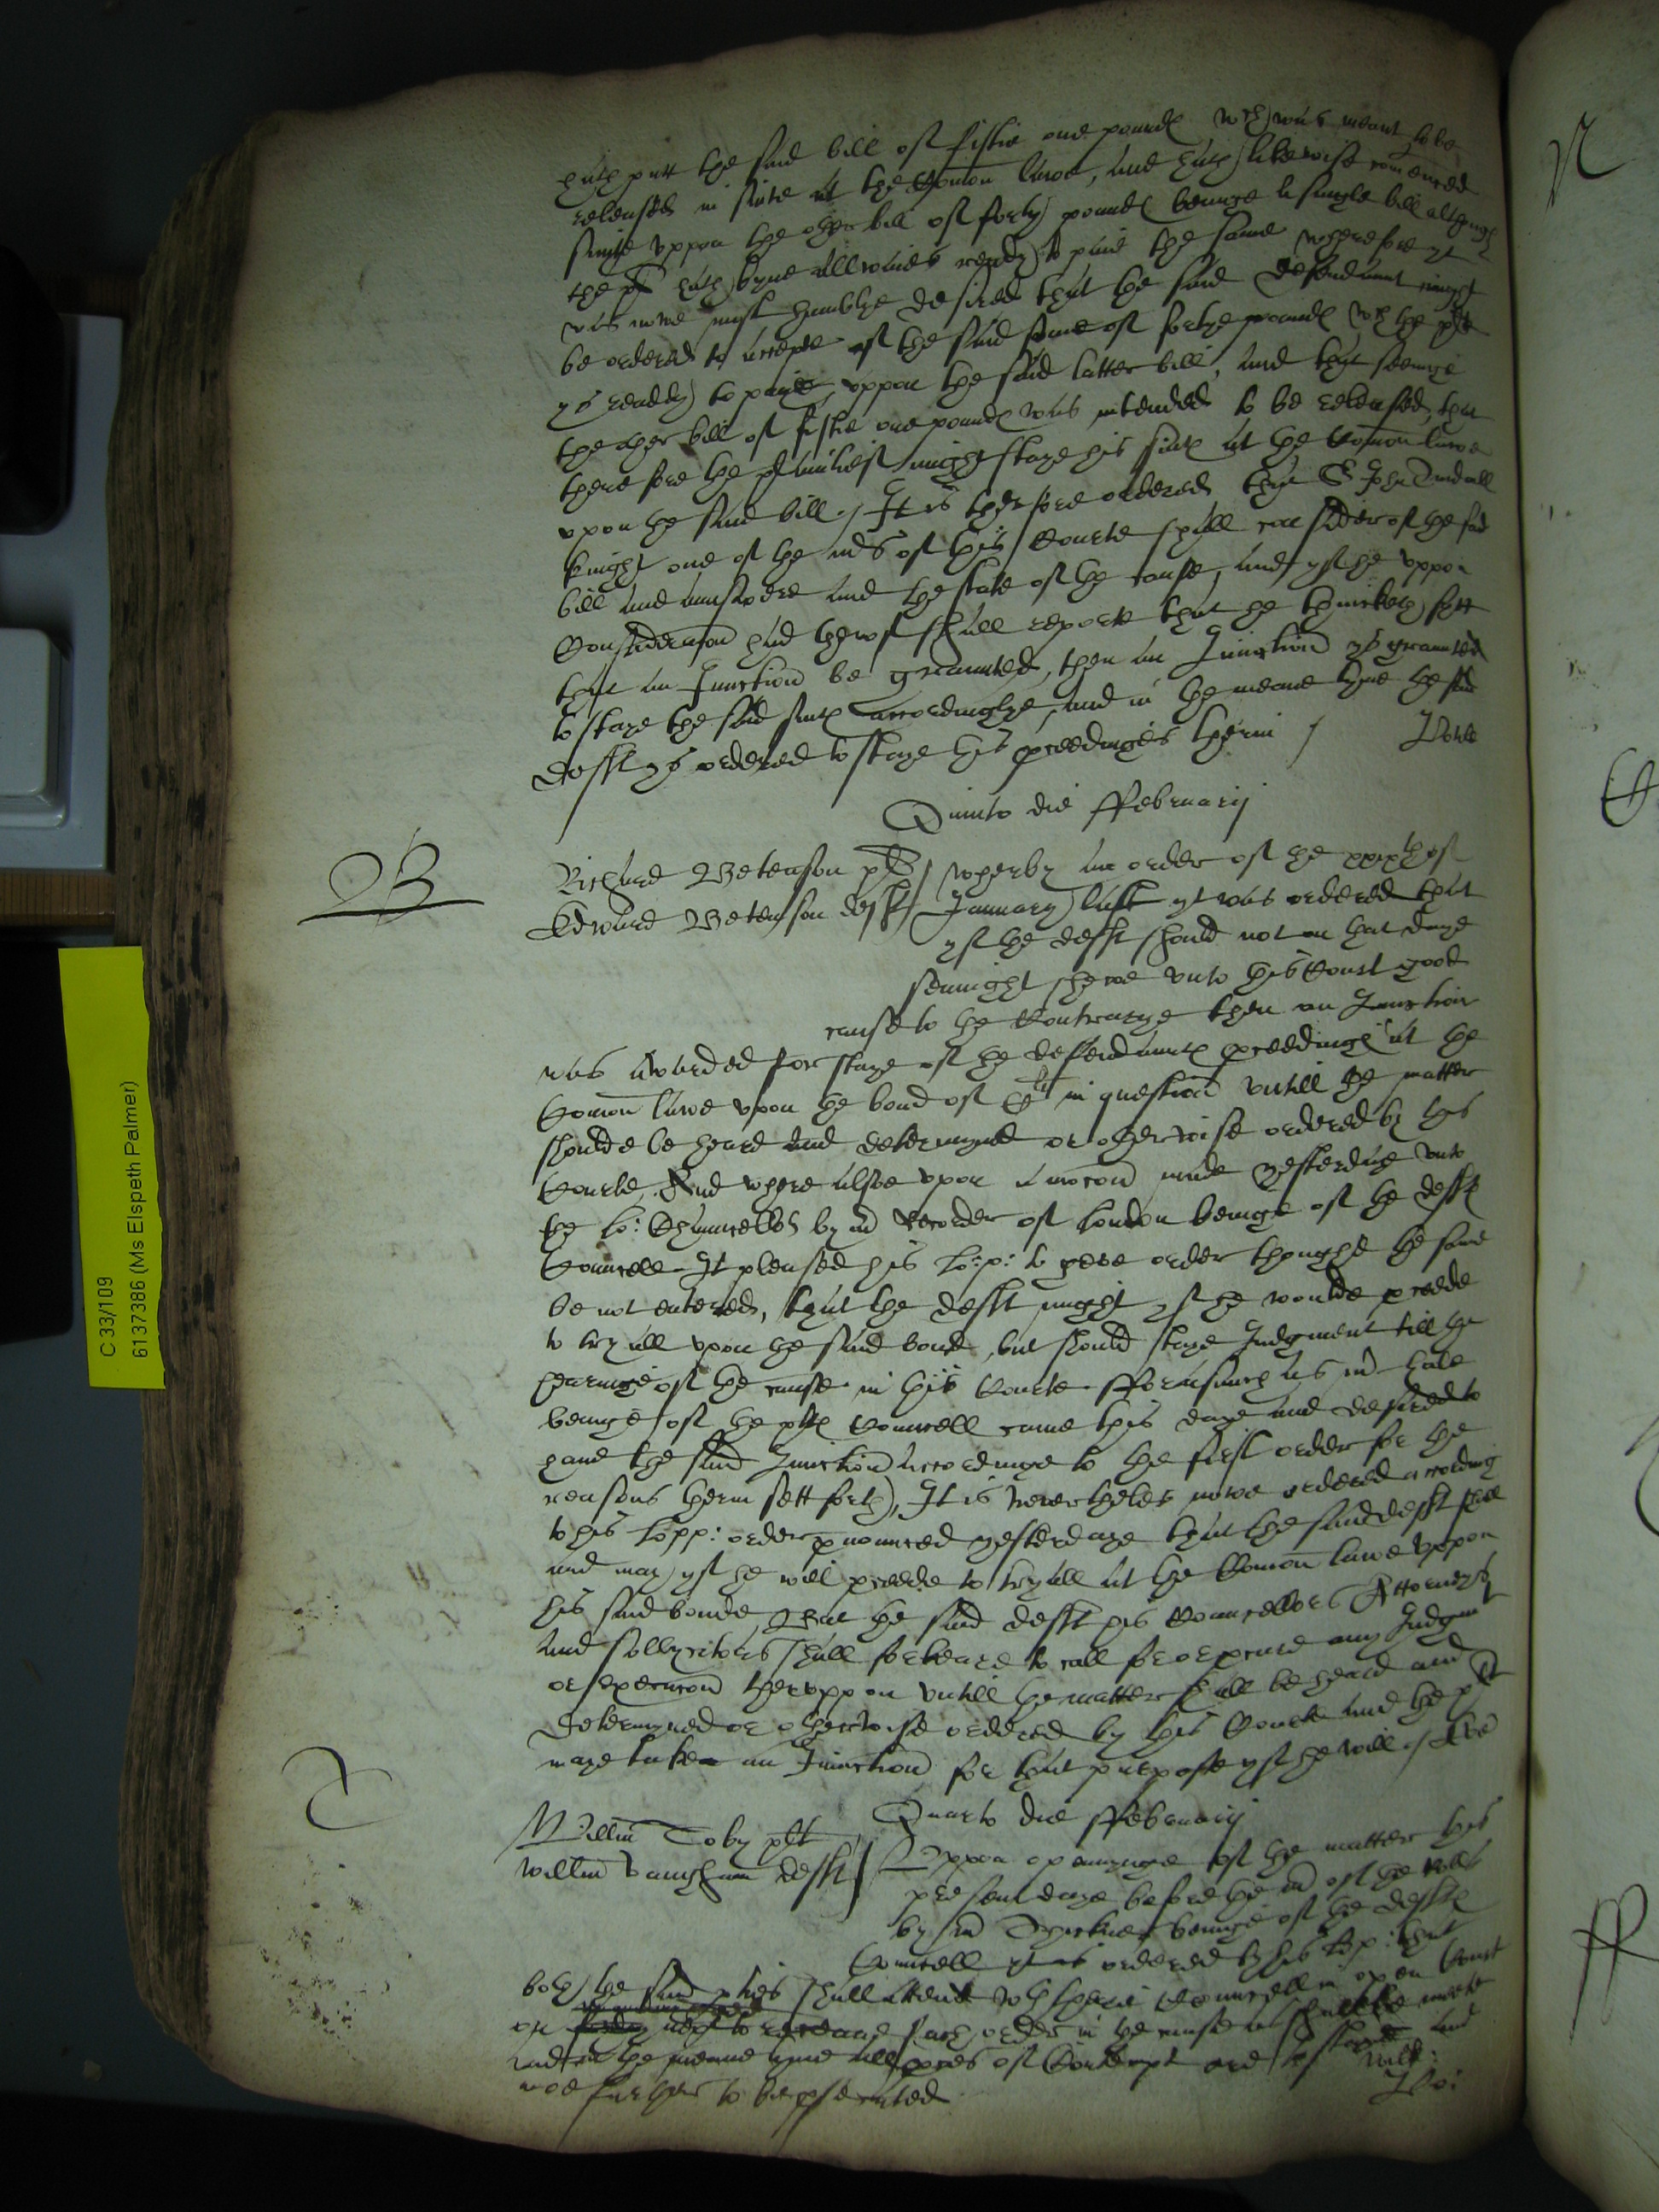 hath putt the said bill of fiftie one pounds wch was meant to be
released in suite at the Comon lawe, and hath likewise comenced
suite vppon the other bill of forty pounds beinge a single bill although
the plt hath byne allwaies ready to paie the same wherefore yt
was nowe most humblye desired that the said defendaunt might
be ordered to accepte of the said some of fortye pounds wch the plt
ys readdy to paye vppon the said latter bill, and that seeinge
the other bill of fiftie one pounds was intended to be released, that
therefore the plaintief might staye his suite at the Comon lawe
vpon the said bill / It is therfore ordered that Sr John Tindall
knight one of the mrs of this Courte shall consider of the said
bill and aunswere and the state of the cause, and yf he vppon
Consideracon had therof shall reporte that he thincketh fytt
that an Iniunction be graunted, then an Iniunction ys graunted
to staye the said suite accordinglye, and in the meane tyme the said
defft ys ordered to staye his pceedinges therin /
Quinto die ffebruarij
B
Richard Betenson plt / Wherby an order of the xxxth of
Edward Betenson defft / January last yt was ordered that
yf the defft should not on that daye
sennight shewe vnto this Court good
cause to the Contrarye then an Iniunction
was awarded for staye of the defendaunts pceedings at the
Comon lawe vpon the bond of Cli in question vntill the matter
should be heard and determyned or otherwise ordered by this
Courte, And where alsoe vpon a mocon made yesterdaye vnto
the lo: Chauncellor by mr Recorder of london beinge of the deffts
Councell It pleased his lo:p: to geve order thoughe the same
be not entered, that the defft might yf he woulde pceede
to tryall vpon the said bond, but should staye Iudgment till the
hearinge of the cause in this Courte. fforasmuch as mr hale
beinge of the plts Councell came this daye and desired to
have the said Iniunction accordinge to the first order for the
reasons therin sett forth, It is neverthelesse nowe ordered accordinge
to his lopp: order pnounced yesterdaye that the said defft shall
and may yf he will pceede to tryall at the Comon lawe vppon
his said bonde, But the said defft his Councellors Attorneys
and sollycitors shall forbeare to call for or pcure any Iudgmt
or execucon thervppon vntill the matter shall be heard and
determyned or otherwise ordered by this Courte and the plt
maye take an Iniunction for that purpose yf he will /
Quarto die ffebruarij
T
Willm Toby plt
Willm Vaughan defft / Vppon openynge of the matter this
present daye before the mr of the rolls
by mr beinge of the deffts
Councell yt is ordered by his lop: that
both the said pties shall attend wth their Councell in open Court
on next to receave such order in the cause as shalbe meete
and in the meane tyme all pces of Contempt are to staye and
noe further to be psecuted